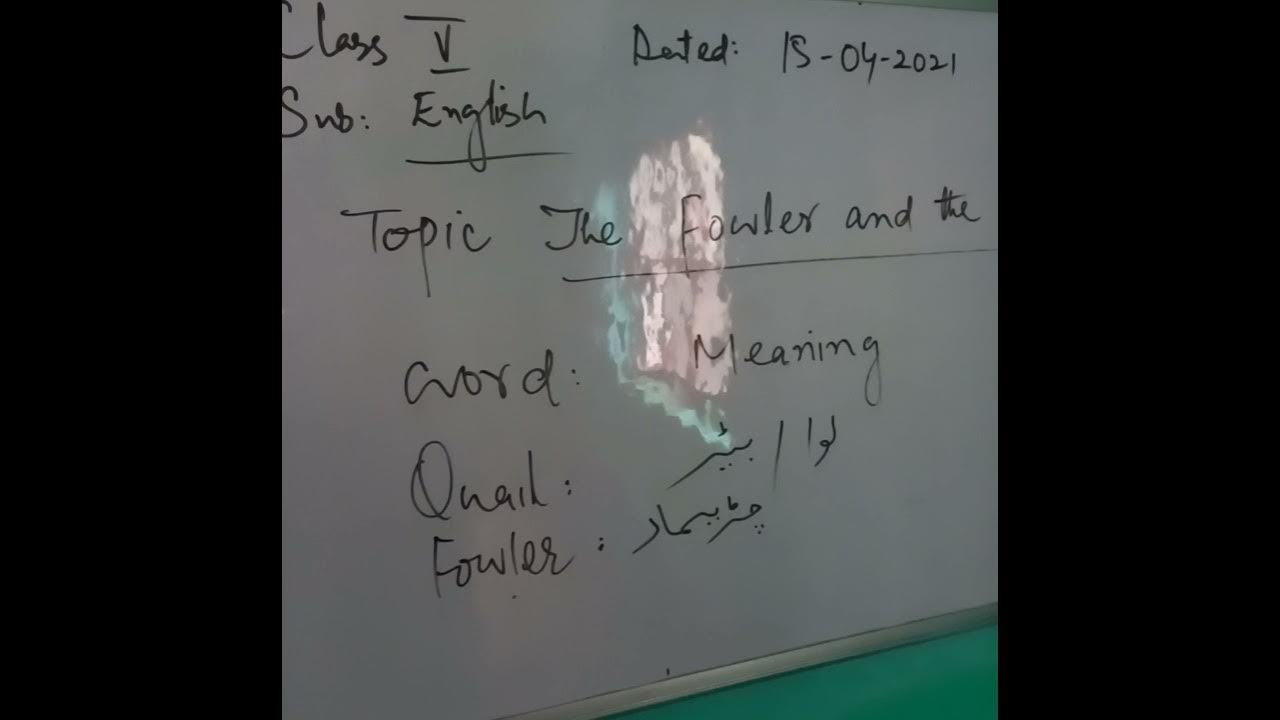 Class V Dated: 15-04-2021
Sub: English
Topic The Fowler and the
Word: Meaning
Quail: لوا / بٹیر
Fowler: چڑیمار